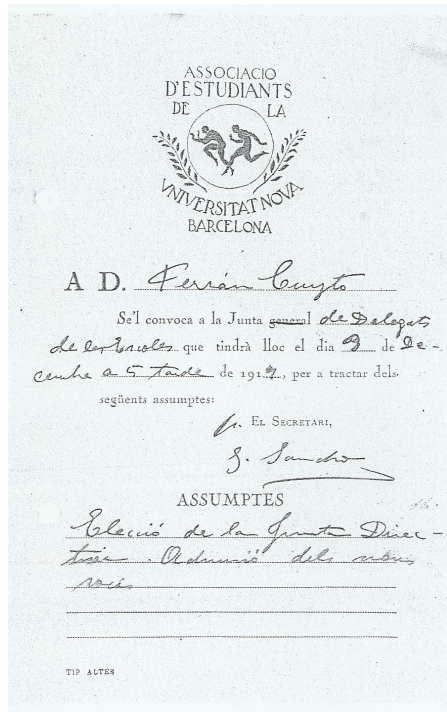 ASSOCIACIO
D'ESTUDIANTS
DE LA
VNIVERSITAT NOVA
BARCELONA
A D. Ferrán Cuyto
Se'l convoca a la Junta general de Delegats
de les Escoles que tindrà lloc el dia 9 de De-
cembre a 5 tarde de 1919, per a tractar dels
següents assumptes:
p. EL SECRETARI,
J. Sancho
ASSUMPTES
Elecció de la Junta Direc-
tiva. Admisió dels nous
socis
TIP ALTES